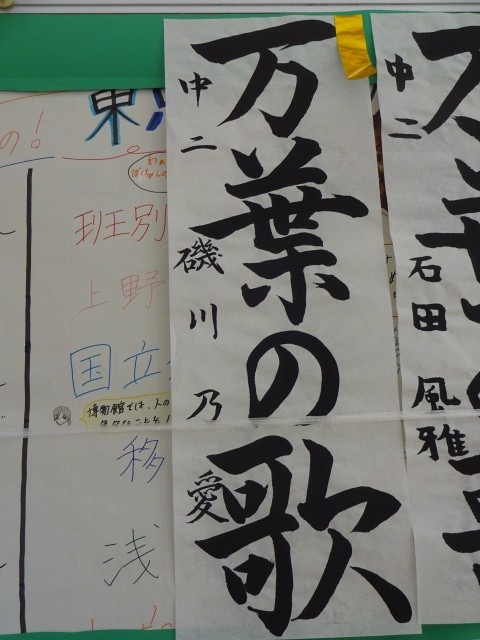 万葉の歌
中二 磯川乃愛
中二 石田風雅
の!
東
班別
上野
国立
博物館では、人の
移
浅